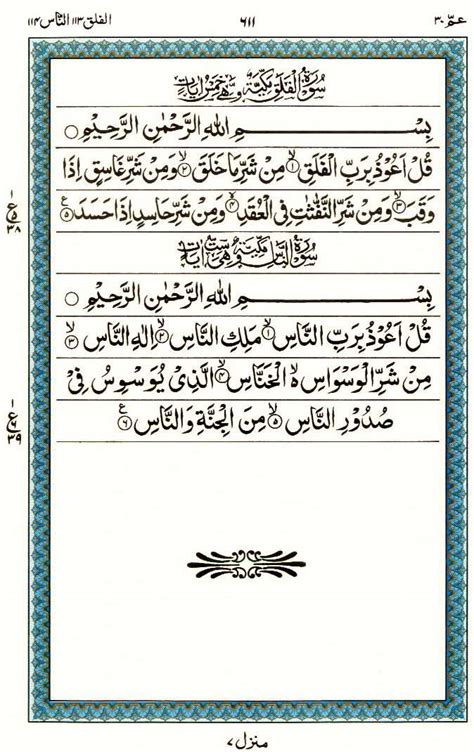 عمّ ٣٠
٦١١
الفلق ١١٣ الناس ١١٤
سُوْرَةُ الْفَلَقِ مَكِّيَّةٌ وَّهِيَ خَمْسُ اٰيَاتٍ
بِسْمِ اللّٰهِ الرَّحْمٰنِ الرَّحِيْمِ ○
قُلْ اَعُوْذُ بِرَبِّ الْفَلَقِ ۙ﴿١﴾ مِنْ شَرِّ مَا خَلَقَ ۙ﴿٢﴾ وَمِنْ شَرِّ غَاسِقٍ اِذَا
وَقَبَ ۙ﴿٣﴾ وَمِنْ شَرِّ النَّفّٰثٰتِ فِی الْعُقَدِ ۙ﴿٤﴾ وَمِنْ شَرِّ حَاسِدٍ اِذَا حَسَدَ ﴿٥﴾ ع
١ ع ٥ ٣٨
سُوْرَةُ النَّاسِ مَكِّيَّةٌ وَّهِيَ سِتُّ اٰيَاتٍ
بِسْمِ اللّٰهِ الرَّحْمٰنِ الرَّحِيْمِ ○
قُلْ اَعُوْذُ بِرَبِّ النَّاسِ ۙ﴿١﴾ مَلِكِ النَّاسِ ۙ﴿٢﴾ اِلٰهِ النَّاسِ ۙ﴿٣﴾
مِنْ شَرِّ الْوَسْوَاسِ ۵ۙ الْخَنَّاسِ ۙ﴿٤﴾ الَّذِیْ یُوَسْوِسُ فِیْ
صُدُوْرِ النَّاسِ ۙ﴿٥﴾ مِنَ الْجِنَّةِ وَالنَّاسِ ﴿٦﴾ ع
١ ع ٦ ٣٩
منزل ٧